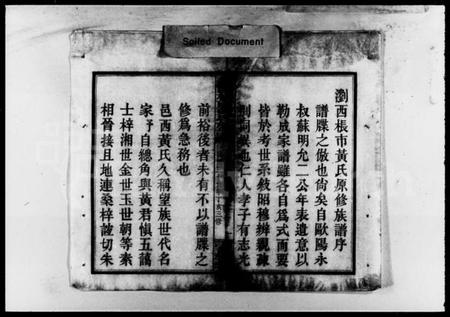 Soiled Document
瀏西棖市黃氏原修族譜序
譜牒之倣也尙矣自歐陽永
叔蘇明允二公年表遺意以
勒成家譜雖各自爲式而要
皆於考世系敘昭穆辨親疎
則同眞也仁人孝子有志光
前裕後者未有不以譜牒之
修爲急務也
邑西黃氏久稱望族世代名
家予自總角與黃君愼五藹
士梓湘世金世玉世朝等素
相晉接且地連桑梓誼切朱